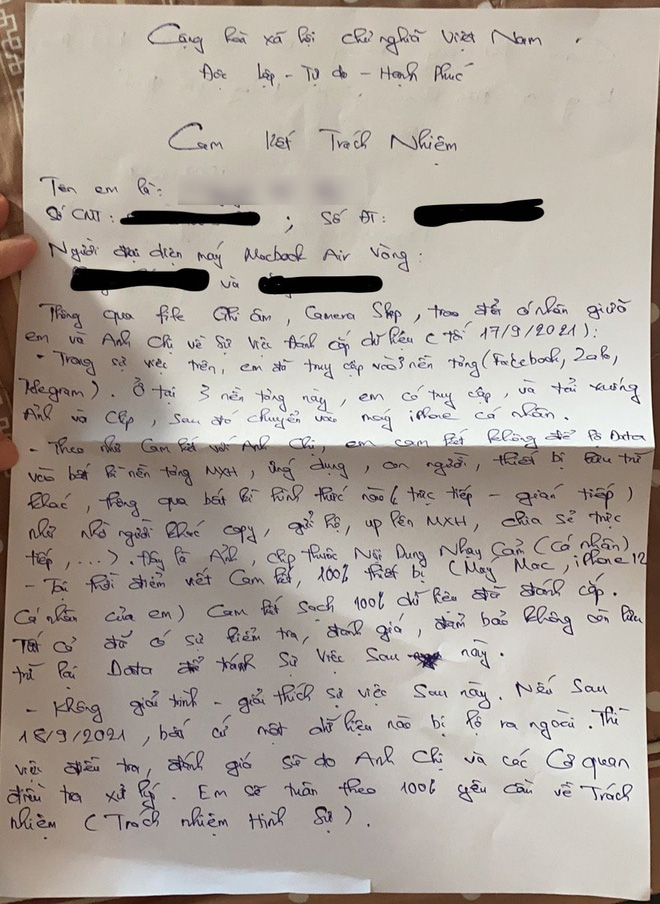 Cộng hoà xã hội chủ nghĩa Việt Nam.
Độc lập - Tự do - Hạnh Phúc
Cam kết Trách Nhiệm
Tên em là:
Số CMT: ; Số ĐT:
Người đại diện máy Macbook Air Vàng:
và
Thông qua file Ghi âm, Camera Shop, trao đổi cá nhân giữa
em và Anh Chị về Sự Việc Đánh cắp dữ liệu (Tối 17/9/2021):
- Trong sự việc trên, em đã truy cập vào 3 nền tảng (Facebook, Zalo,
Telegram). Ở tại 3 nền tảng này, em có truy cập, và tải xuống
Ảnh và Clip, sau đó chuyển vào máy iPhone cá nhân.
- Theo như Cam kết với Anh Chị, em cam kết không để lộ Data
vào bất kì nền tảng MXH, ứng dụng, con người, thiết bị lưu trữ
khác, thông qua bất kì hình thức nào (trực tiếp - gián tiếp)
như nhờ người khác copy, gửi hộ, up lên MXH, chia sẻ trực
tiếp, ...). Đây là Ảnh, clip thuộc Nội Dung Nhạy Cảm (Cá nhân)
- Tại thời điểm viết Cam kết, 100% thiết bị (Máy Mac, iPhone 12
Cá nhân của em) Cam kết sạch 100% dữ liệu đã đánh cắp.
Tất cả đã có sự kiểm tra, đánh giá, đảm bảo không còn lưu
trữ lại Data để tránh Sự Việc Sau này.
- Không giải trình - giải thích sự việc Sau này. Nếu Sau
18/9/2021, bất cứ một dữ liệu nào bị lộ ra ngoài. Thì
việc điều tra, đánh giá sẽ do Anh Chị và các Cơ quan
điều tra xử lý. Em sẽ tuân theo 100% yêu cầu về Trách
nhiệm (Trách nhiệm Hình Sự).